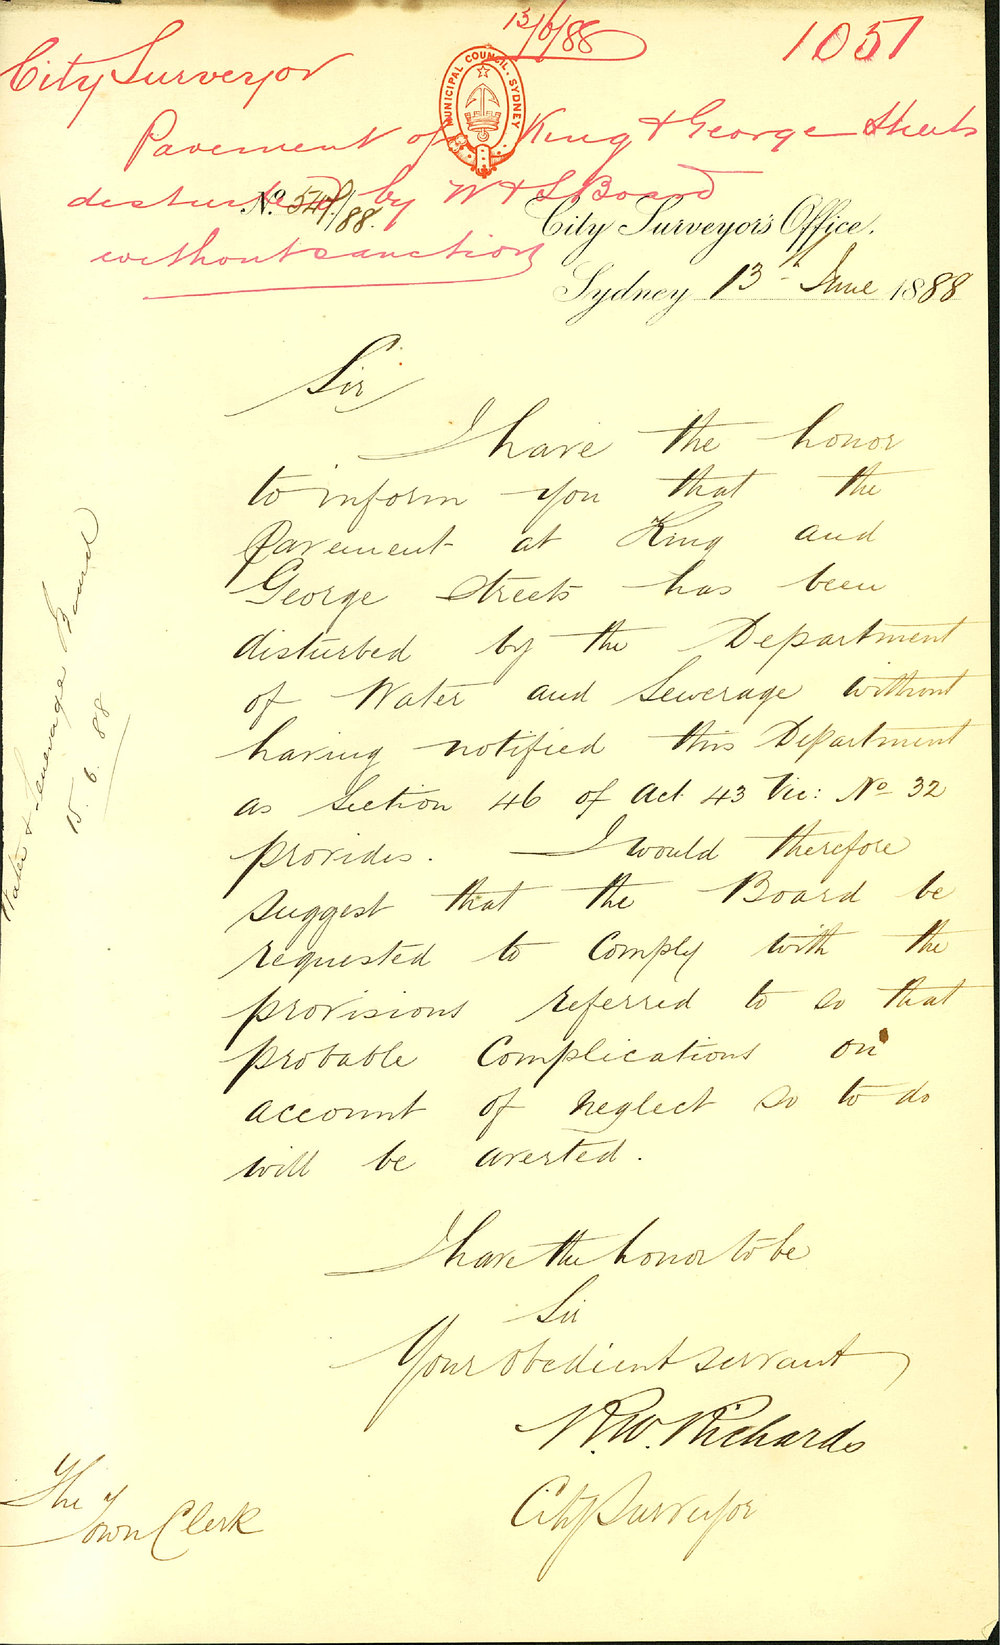 13/6/88
1051
City Surveyor
MUNICIPAL COUNCIL. SYDNEY
Pavement of King & George Streets
disturbed by W & S Board
without sanction
No. 548/88.
City Surveyor's Office,
Sydney 13th June 1888
Sir
I have the honor
to inform you that the
Pavement at King and
George Streets has been
disturbed by the Department
of Water and Sewerage without
having notified this Department
as Section 46 of Act 43 Vic: No 32
provides. I would therefore
suggest that the Board be
requested to comply with the
provisions referred to so that
probable complications on
account of neglect so to do
will be averted.
I have the honor to be
Sir
Your obedient servant
R.W. Richards
City Surveyor
The
Town Clerk
Water & Sewerage Board
15. 6. 88